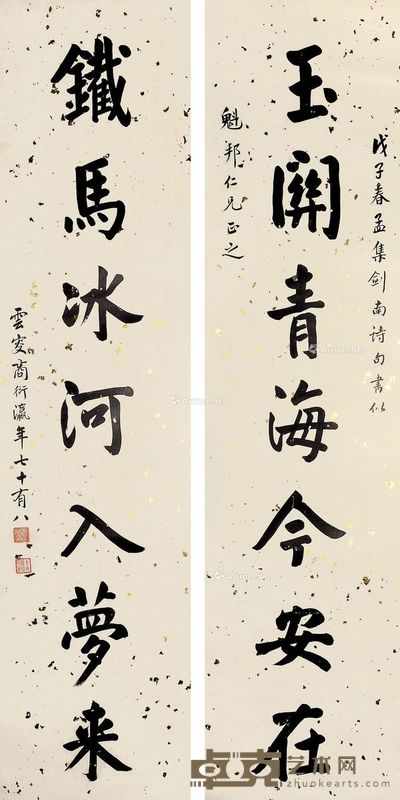 玉關青海今安在
戊子春孟集剑南诗句書似
魁邦仁兄正之
鐵馬冰河入夢来
雲叜商衍瀛年七十有八
卓克艺术网
zhuokearts.com